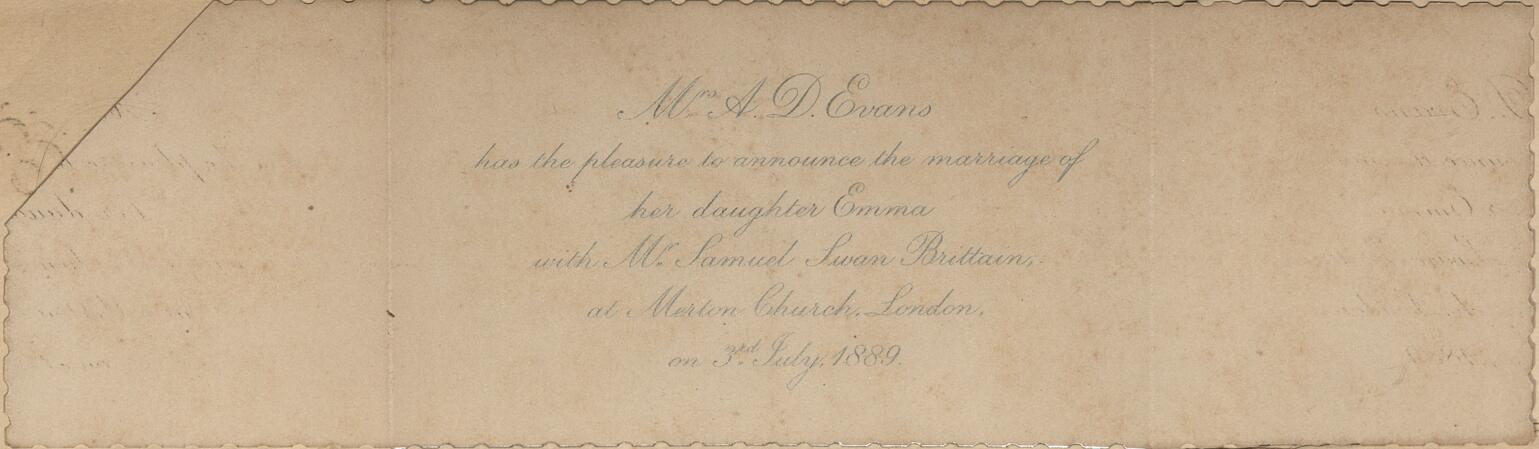 Mrs A. D. Evans
has the pleasure to announce the marriage of
her daughter Emma
with Mr. Samuel Swan Brittain,
at Merton Church, London,
on 3rd July, 1889.